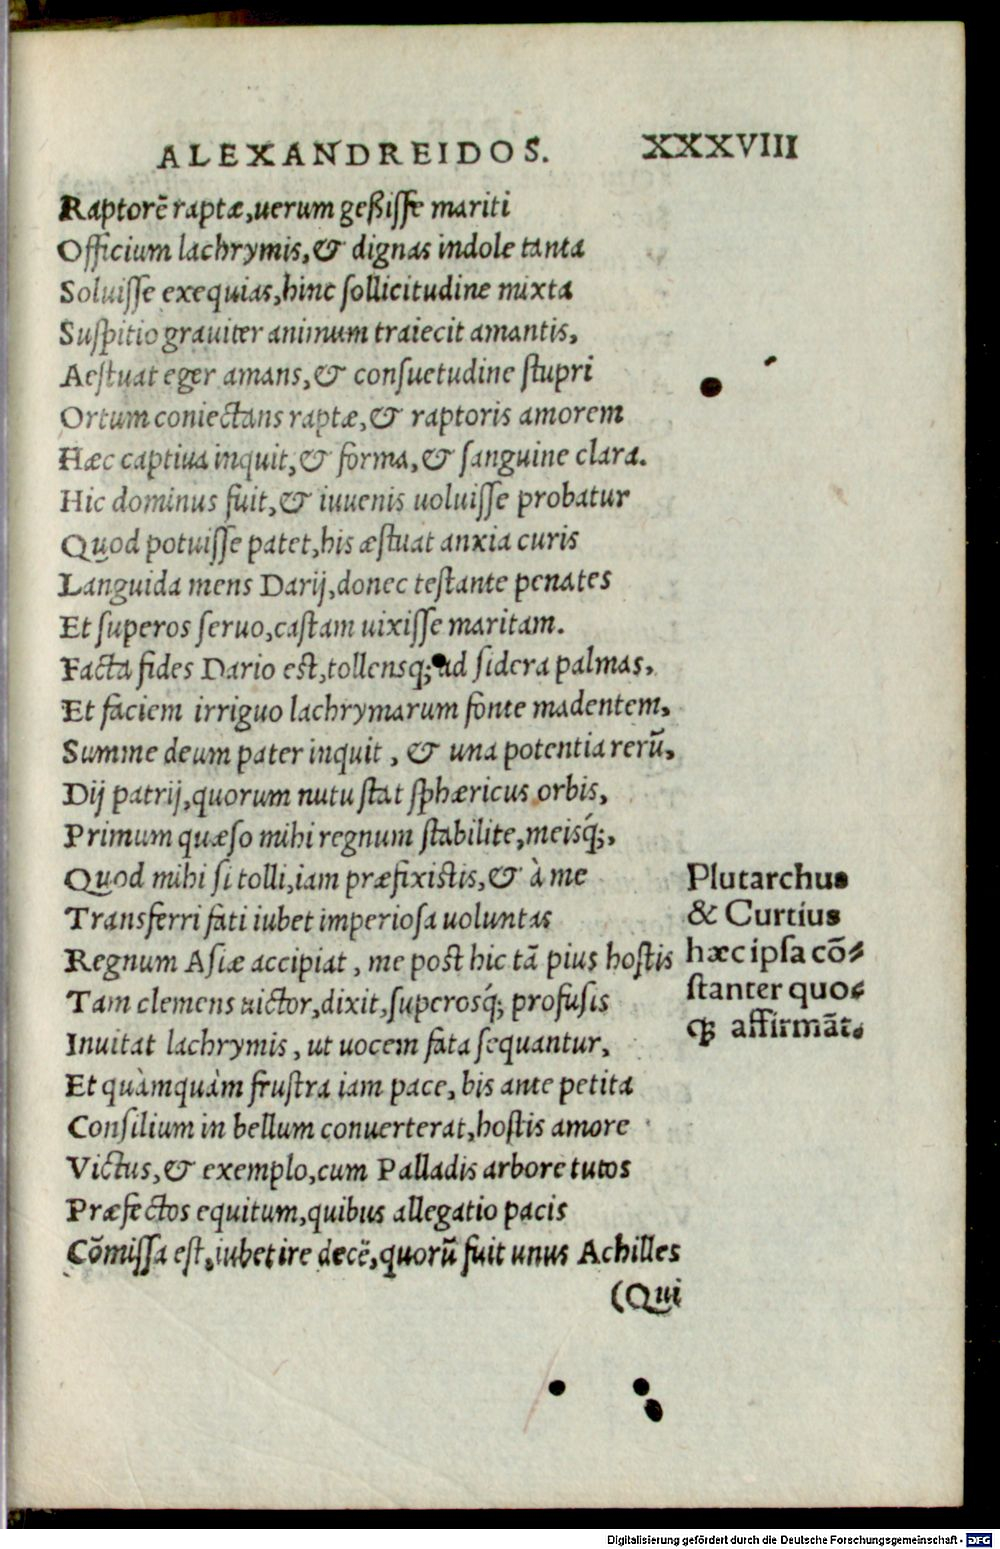 ALEXANDREIDOS. XXXVIII
Raptorē raptæ,uerum geßiſſe mariti
Officium lachrymis,& dignas indole tanta
Soluiſſe exequias,hinc ſollicitudine mixta
Suſpitio grauiter animum traiecit amantis,
Aeſtuat eger amans,& conſuetudine ſtupri
Ortum coniectans raptæ,& raptoris amorem
Hæc captiua inquit,& forma,& ſanguine clara.
Hic dominus fuit,& iuuenis uoluiſſe probatur
Quod potuiſſe patet,his æſtuat anxia curis
Languida mens Darij,donec teſtante penates
Et ſuperos ſeruo,caſtam uixiſſe maritam.
Facta fides Dario eſt,tollensq; ad ſidera palmas,
Et faciem irriguo lachrymarum fonte madentem,
Summe deum pater inquit , & una potentia rerū,
Dij patrij,quorum nutu ſtat ſphæricus orbis,
Primum quæſo mihi regnum ſtabilite,meisq́;,
Quod mihi ſi tolli,iam præfixiſtis,& à me
Transferri fati iubet imperioſa uoluntas
Regnum Aſiæ accipiat , me poſt hic tā pius hoſtis
Tam clemens uictor,dixit,ſuperosq́; profuſis
Inuitat lachrymis , ut uocem fata ſequantur,
Et quàmquàm fruſtra iam pace, bis ante petita
Conſilium in bellum conuerterat,hoſtis amore
Victus,& exemplo,cum Palladis arbore tutos
Præfectos equitum,quibus allegatio pacis
Cōmiſſa eſt,iubet ire decē,quorū fuit unus Achilles
(Qui
Plutarchus
& Curtius
hæc ipſa cō-
ſtanter quo-
qꝫ affirmāt.
Digitalisierung gefördert durch die Deutsche Forschungsgemeinschaft - DFG